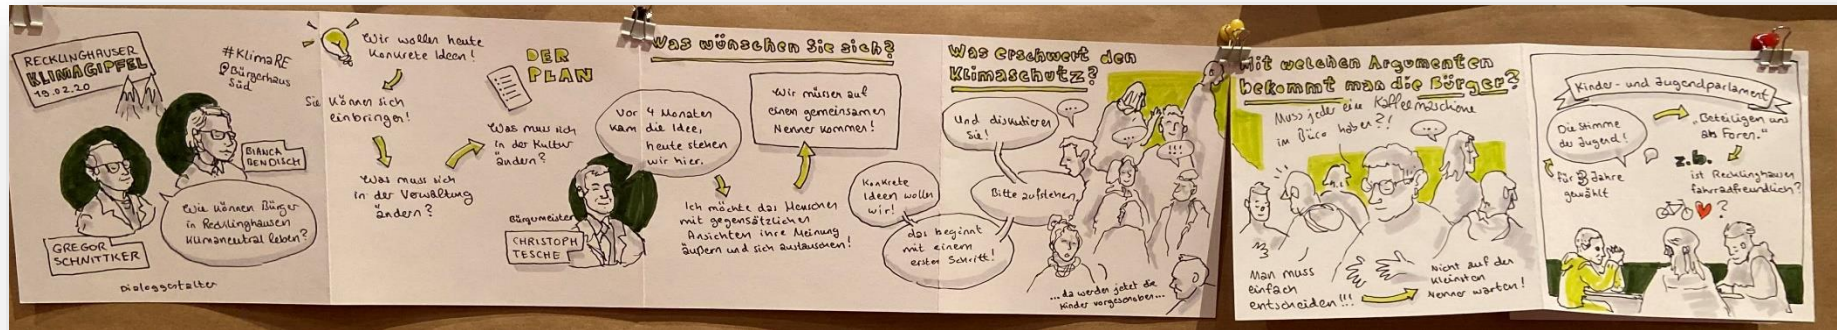 RECKLINGHÄUSER
KLIMAGIPFEL
19.02.20
#KlimaRE
@Bürgerhaus
Süd
BIANCA
BENDISCH
Wie können Bürger
in Recklinghausen
klimaneutral leben?
GREGOR
SCHNITTKER
Dialoggestalter
Wir wollen heute
konkrete Ideen!
Sie können sich
einbringen!
Was muss sich
in der Verwaltung
ändern?
Was muss sich
in der Kultur
ändern?
DER
PLAN
Vor 4 Monaten
kam die Idee,
heute stehen
wir hier.
Bürgermeister
CHRISTOPH
TESCHE
Was wünschen Sie sich?
Wir müssen auf
einen gemeinsamen
Nenner kommen!
Ich möchte das Menschen
mit gegensätzlichen
Ansichten ihre Meinung
äußern und sich austauschen!
Konkrete
Ideen wollen
wir!
das beginnt
mit einem
ersten Schritt!
Was erschwert den
Klimaschutz?
Und diskutieren
Sie!
Bitte aufstehen
...
...
!!!
...da werden jetzt die
Kinder vorgeschoben...
Mit welchen Argumenten
bekommt man die Bürger?
Muss jeder eine Kaffeemaschine
im Büro haben?!
...
Man muss
einfach
entscheiden!!!
Nicht auf den
kleinsten
Nenner warten!
Kinder- und Jugendparlament
Die Stimme
der Jugend!
für 3 Jahre
gewählt
„Beteiligen uns
an Foren."
z.b.
ist Recklinghausen
fahrradfreundlich?
?